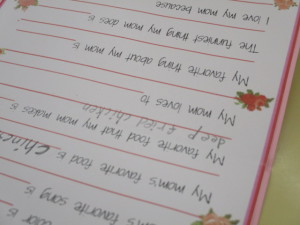 color is
mom's favorite song is
My mom's favorite food is Chines
My favorite food that my mom makes is
deep fried chicken
My mom loves to
My favorite thing about my mom is
The funniest thing my mom does is
I love my mom because